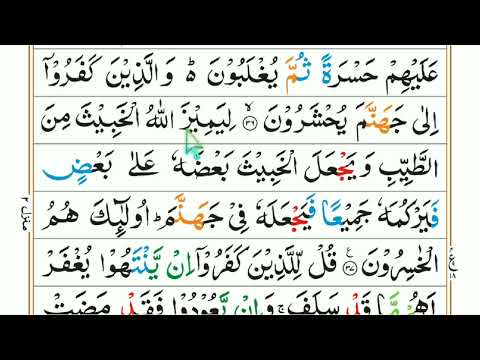 عَلَيْهِمْ حَسْرَةً ثُمَّ يُغْلَبُوْنَ ؕ وَالَّذِيْنَ كَفَرُوْۤا
اِلٰى جَهَنَّمَ يُحْشَرُوْنَ ۙ۳۶ لِيَمِيْزَ اللّٰهُ الْخَبِيْثَ مِنَ
الطَّيِّبِ وَيَجْعَلَ الْخَبِيْثَ بَعْضَهٗ عَلٰى بَعْضٍ
فَيَرْكُمَهٗ جَمِيْعًا فَيَجْعَلَهٗ فِيْ جَهَنَّمَ ؕ اُولٰٓئِكَ هُمُ
الْخٰسِرُوْنَ ۳۷ قُلْ لِّلَّذِيْنَ كَفَرُوْۤا اِنْ يَّنْتَهُوْا يُغْفَرْ
لَهُمْ مَّا قَدْ سَلَفَ ۚ وَاِنْ يَّعُوْدُوْا فَقَدْ مَضَتْ
منزل ۲